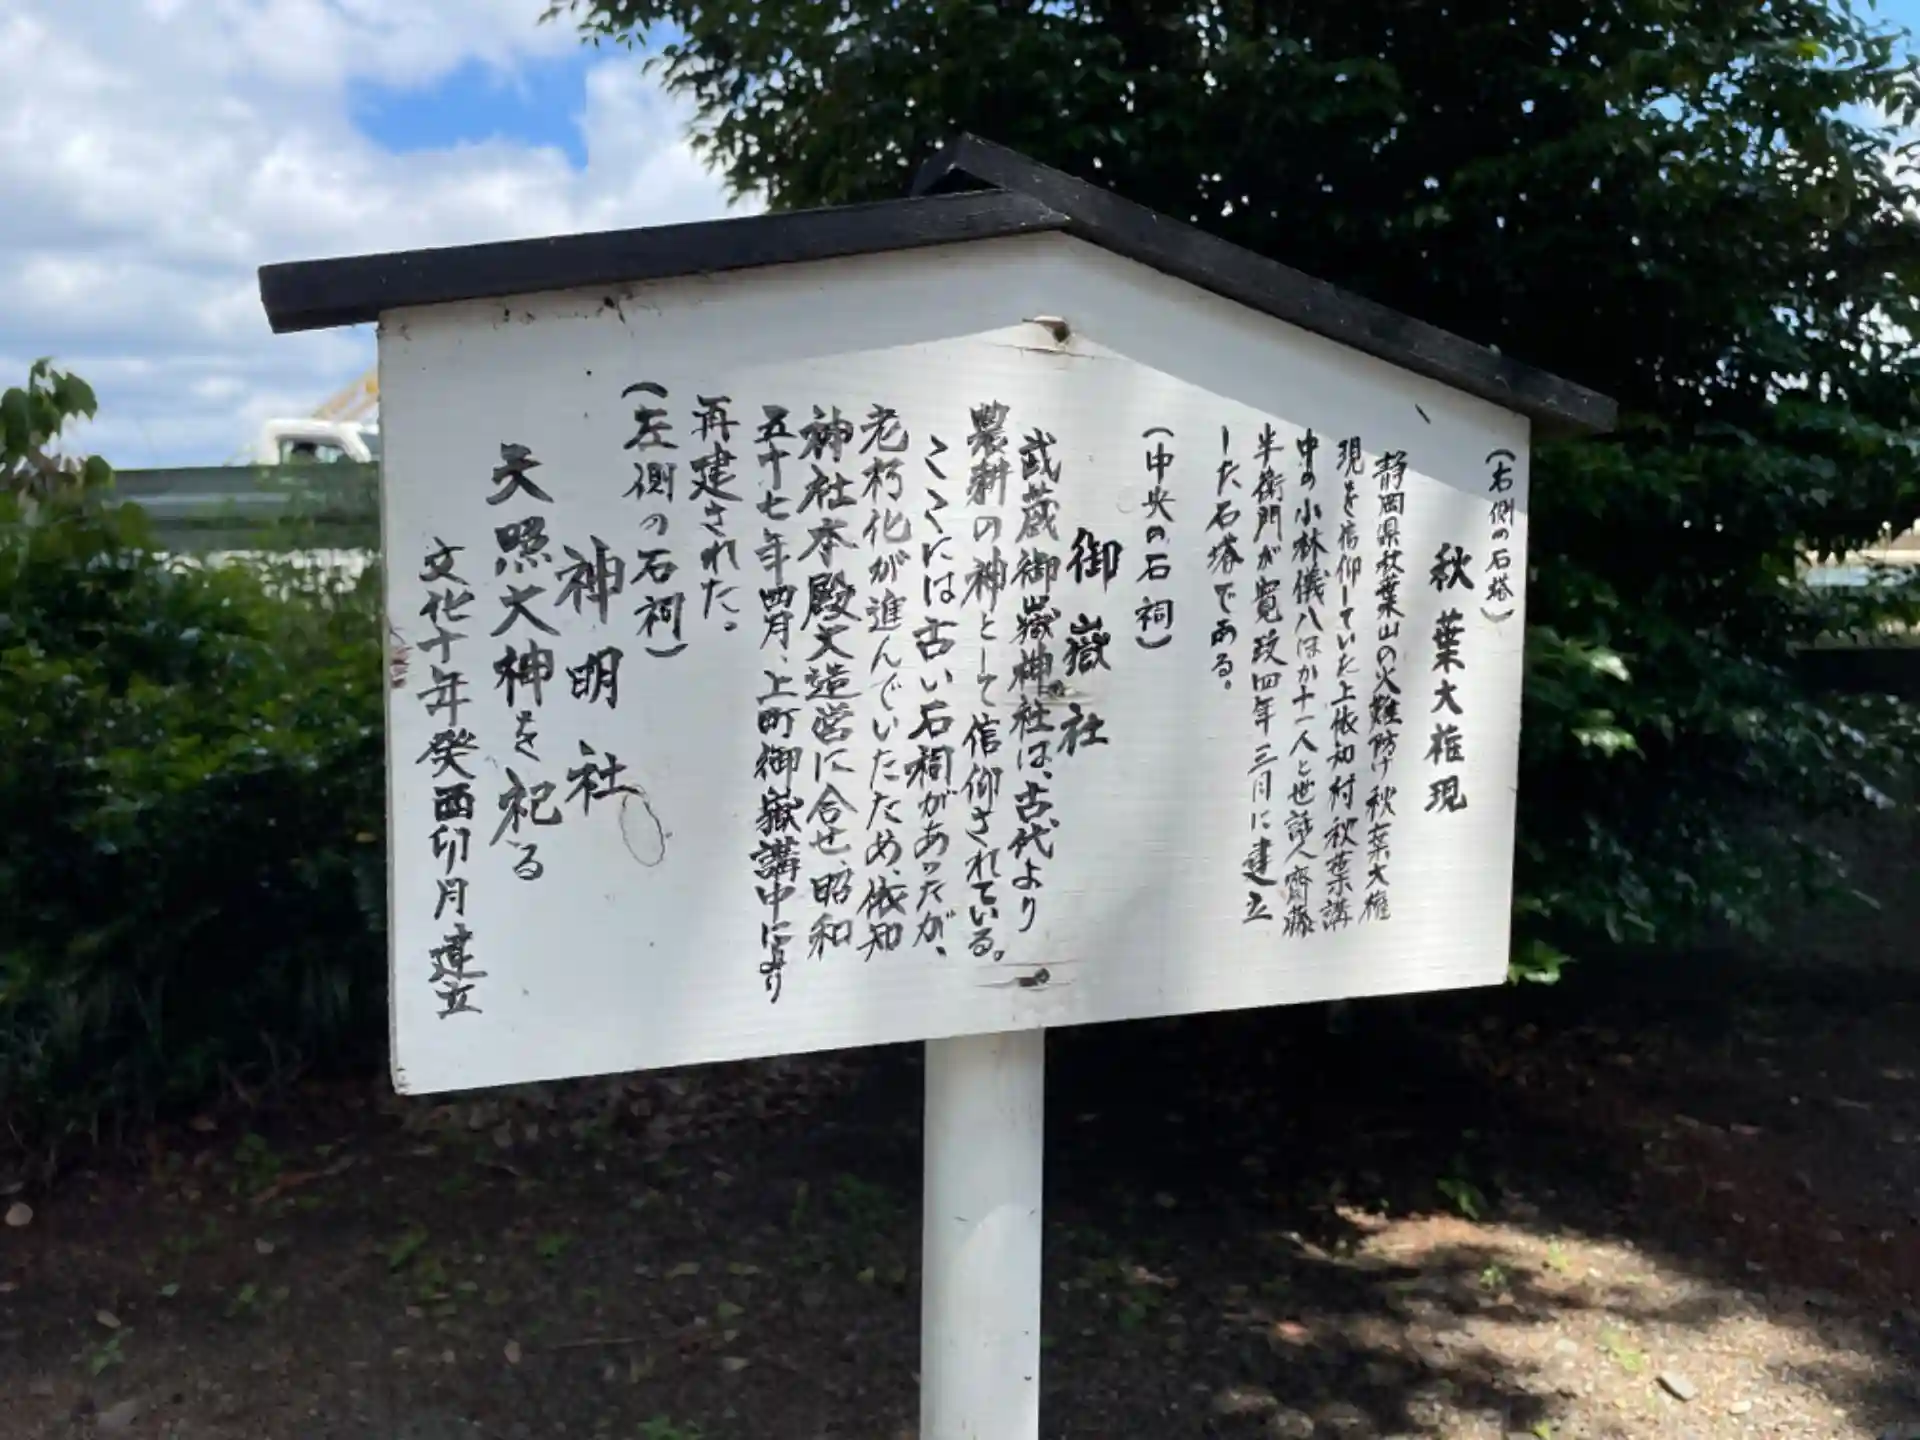 (右側の石塔)
秋葉大権現
静岡県秋葉山の火難防け秋葉大権
現を信仰していた上依知村秋葉講
中の小林儀八ほか十一人と世話人齊藤
半衛門が寛政四年三月に建立
した石塔である。
(中央の石祠)
御嶽社
武蔵御嶽神社は、古代より
農耕の神として信仰されている。
ここには古い石祠があったが、
老朽化が進んでいたため、依知
神社本殿大造営に合せ、昭和
五十七年四月、上町御嶽講中により
再建された。
(左側の石祠)
神明社
天照大神を祀る
文化十年癸酉卯月建立